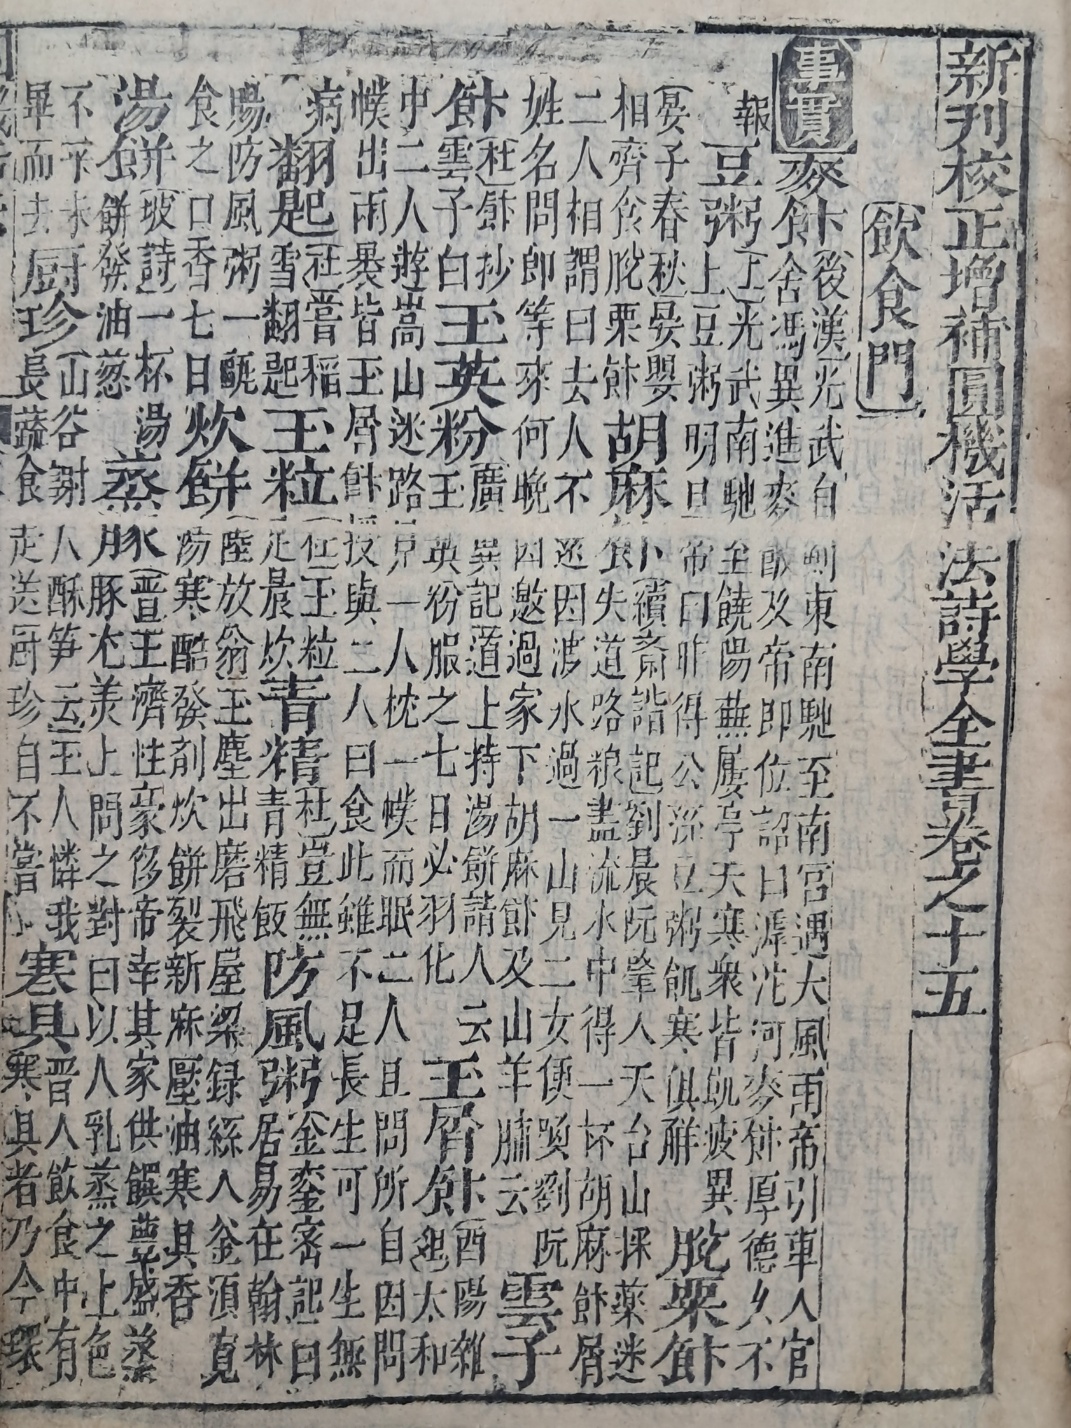 新刊校正增補圓機活法詩學全書卷之十五
飲食門
事實
麥飰 後漢光武自薊東南馳至南宮遇大風雨帝引車入官
舍馮異進麥飰及帝即位詔曰滹沱河麥飰厚德久不
報
豆粥 上光武南馳至饒陽蕪蔞亭天寒衆皆飢疲異
上豆粥明旦帝曰昨得公孫豆粥飢寒俱解
脫粟飰
晏子春秋晏嬰
相齊食脫粟飰
胡麻飰 續齊諧記劉晨阮肇人天台山採藥迷
失道路粮盡流水中得一杯胡麻飰屑
二人相謂曰去人不遠因渡水過一山見二女便喚劉阮
姓名問郎等來何晚因邀過家下胡麻飰及山羊脯云
雲子
飰 杜飰抄
雲子白
玉英粉 廣異記道上持湯餅請人云
玉英粉服之七日必羽化
玉屑飰 酉陽雜
俎太和
中二人遊嵩山迷路見一人枕一幞而眠二人且問所自因問
幞出兩裹皆玉屑飰授與二人曰食此雖不足長生可一生無
病
翻匙 杜嘗稻
雪翻匙
玉粒 杜玉粒
足晨炊
青精 杜豈無
青精飯
防風粥 金鑾密記曰
居易在翰林
賜防風粥一甌
食之口香七日
炊餅 陸放翁玉塵出磨飛屋梁録絲人釜須寬
湯寒酷發剤炊餅裂新麻壓油寒具香
湯餅 坡詩一杯湯
餅發油葱
蒸豚 晋王濟性豪侈帝幸其家供饌豊盛蒸
豚尤美上問之對曰以人乳蒸之上色
不平未
畢而去
厨珍 山谷謝人酥笋云主人憐我
長蔬食走送厨珍自不嘗
寒具 晋人飲食中有
寒具者乃今環